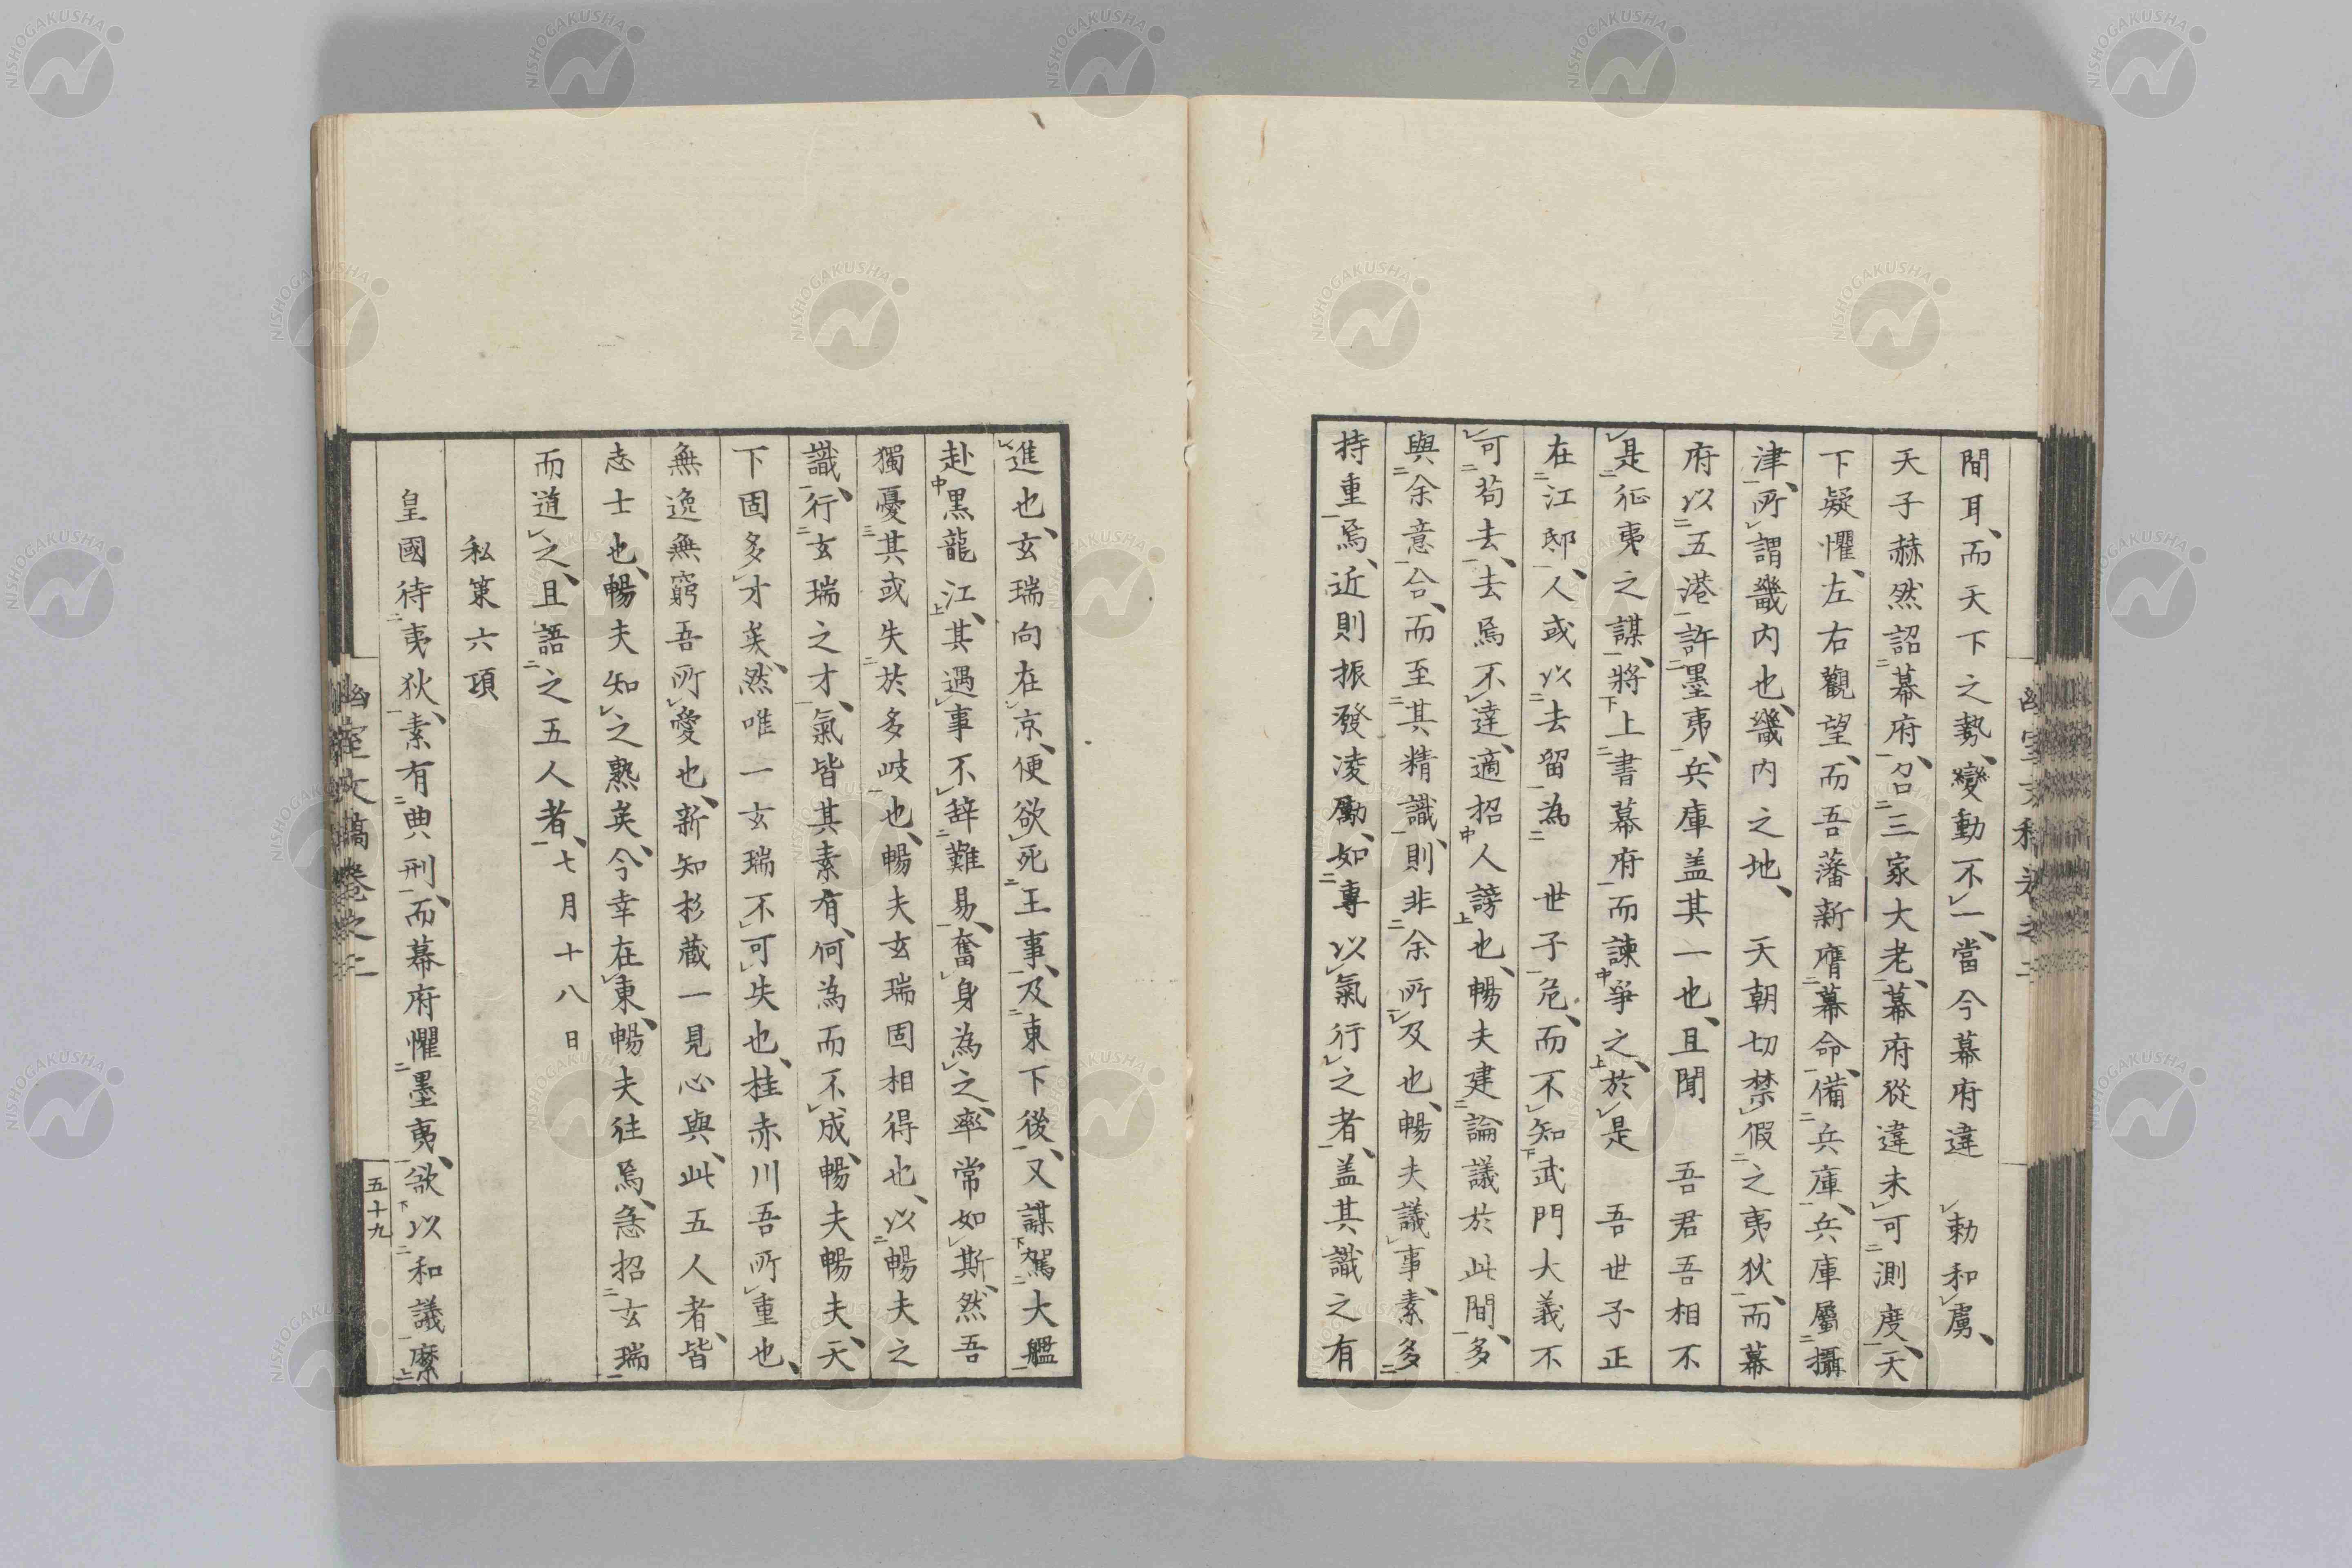 間耳、而天下之勢、變動不一、當今幕府違　勅和虜、
天子赫然詔幕府、召三家大老、幕府從違未可測度、天
下疑懼、左右觀望、而吾藩新膺幕命、備兵庫、兵庫屬攝
津、所謂畿内也、畿内之地、　天朝切禁假之夷狄、而幕
府以五港許墨夷、兵庫盖其一也、且聞　吾君吾相不
是征夷之謀、將上書幕府而諫爭之、於是　吾世子正
在江邸、人或以去留為　世子危、而不知武門大義不
可苟去、去焉不達、適招人謗也、暢夫建論議於此間、多
與余意合、而至其精識、則非余所及也、暢夫議事、素多
持重焉、近則振發凌勵、如專以氣行之者、盖其識之有
進也、玄瑞向在京、便欲死王事、及東下後、又謀駕大艦
赴黒龍江、其遇事不辞難易、奮身為之、率常如斯、然吾
獨憂其或失於多岐也、暢夫玄瑞固相得也、以暢夫之
識、行玄瑞之才、氣皆其素有、何為而不成、暢夫暢夫、天
下固多才矣、然唯一玄瑞不可失也、桂赤川吾所重也、
無逸無窮吾所愛也、新知杉蔵一見心與、此五人者、皆
志士也、暢夫知之熟矣、今幸在東、暢夫往焉、急招玄瑞
而道之、且語之五人者、七月十八日
私策六項
皇國待夷狄、素有典刑、而幕府懼墨夷、欲以和議縻
幽室文稿巻之二
五十九